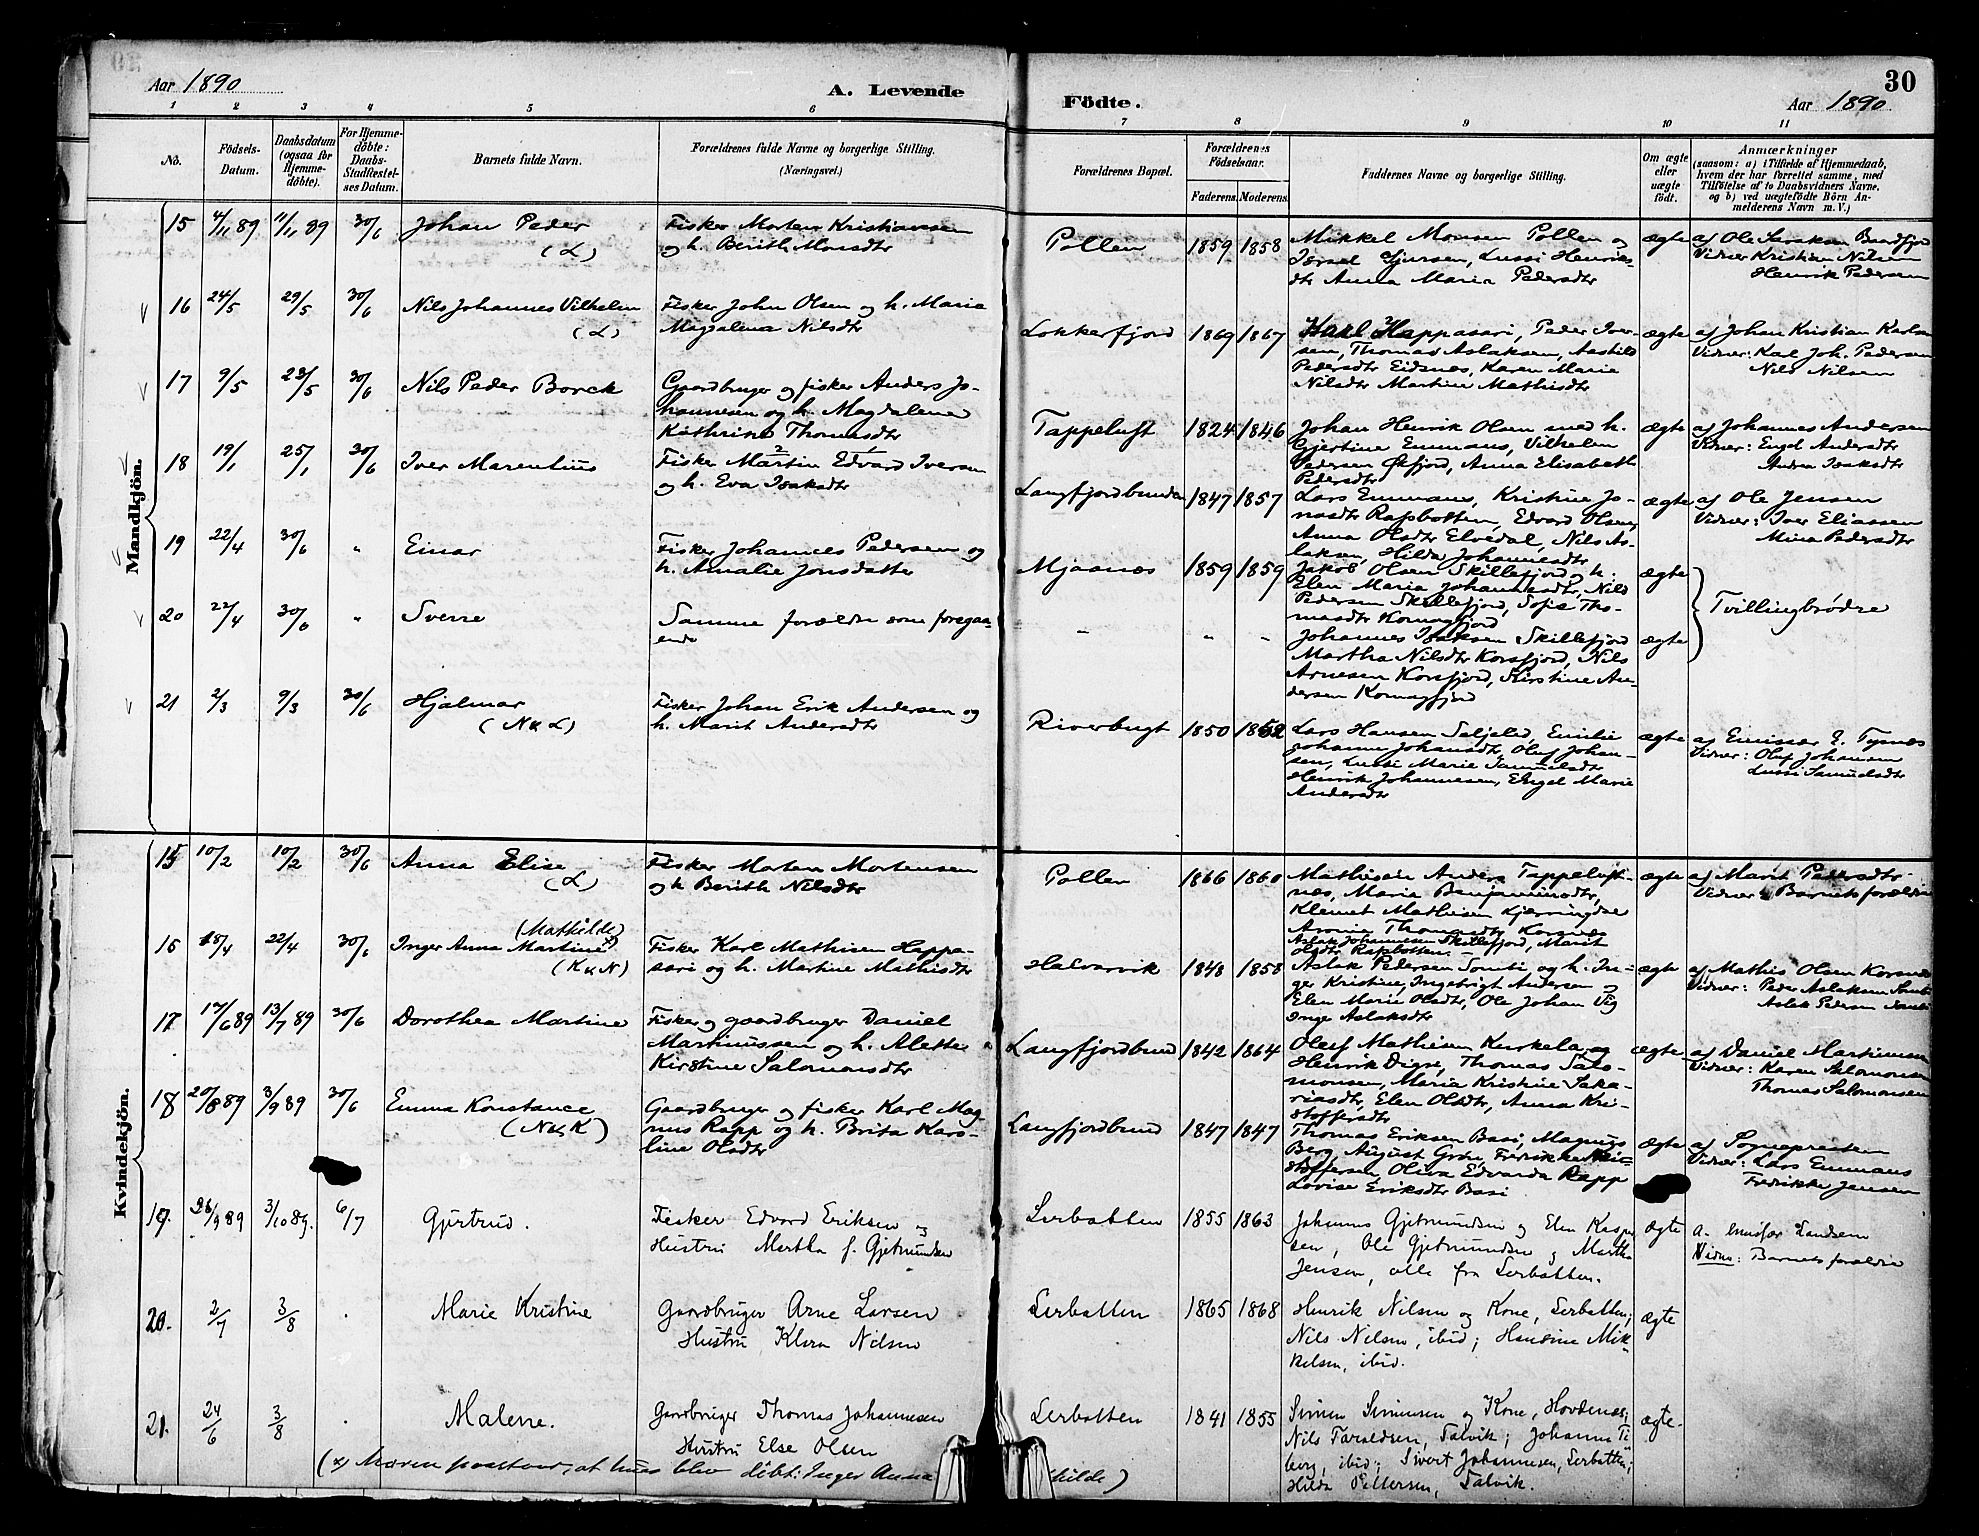 Aar 1890
A. Levende
Födte.
Aar 1890
30
1 2 3 4 5 6 7 8 9 10 11
No.
Födsels-Datum.
Daabsdatum (ogsaa for Hjemme-døbte).
For Hjemme-døbte: Daabs-Stadfæstel-ses Datum.
Barnets fulde Navn.
Forældrenes fulde Navne og borgerlige Stilling. (Næringsvei.)
Forældrenes Bopæl.
Forældrenes Födselsaar.
Faderens. Moderens.
Faddernes Navne og borgerlige Stilling.
Om ægte eller uægte født.
Anmærkninger
(saasom: a) i Tilfælde af Hjemmedaab,
hvem der har forrettet samme, med
Tilføielse af to Daabsvidners Navne,
og b) ved uægtefødte Börn An-
melderens Navn m. V.)
Mandkjön.
15 4/11 89 11/11 89 30/6 Johan Peder (L)
Fisker Morten Kristiansen
og h. Berith Monsdtr
Pollen 1859 1858
Mikkel Monsen Pollen og
Israel Gjursen, Lussi Henriks-
dtr Anna Maria Pedersdtr
ægte
af Ole Isaksen
Vidner Kristian Nilsen
Henrik Pedersen
16 24/5 29/5 30/6 Nils Johannes Vilhelm (L)
Fisker John Olsen og h. Maria
Magdalena Nilsdtr
Lokkerfjord 1869 1867
Karl Happasari, Peder Iver-
sen, Thomas Aslaksen,
Pedersdtr Eidsnes, Karen Marie
Nilsdtr Martine Mathisdtr
ægte
af Johan Kristian Karlsen
Vidner: Karl Joh. Pedersen
Nils Nilsen
17 9/5 23/5 30/6 Nils Peder Borck
Gaardbruger og fisker Anders Jo-
hannesen og h. Magdalena
Kathrine Thomasdtr
Tappeluft 1824 1846
Johan Henrik Olsen med h.
Gjertine Emmaus, Vilhelm
Pedersen Øxfjord, Anna Elisabeth
Pedersdtr
ægte
af Johannes Andersen
Vidner: Engel Andersdtr
Andrea Isaksdtr
18 19/1 25/1 30/6 Iver Marentius
Fisker Martin Edvard Iversen
og h. Eva Isaksdtr
Langfjordbunden 1847 1857
Lars Emmaus, Kristine Jo-
nasdtr Rafsbotten, Edvard Olsen,
Anna Olsdtr Elvedal, Nils As-
laksen, Hilda Johannesdtr
ægte
af Ole Jensen
Vidner: Iver Eliassen
Mina Pedersdtr
19 22/4 30/6 " Einar
Fisker Johannes Pedersen og
h. Amalie Jonsdatter
Mjaanes 1859 1859
Jakob Olsen Skillefjord og h.
Elen Maria Johannesdtr, Nils
Pedersen Skillefjord, Sofie Tho-
masdtr Komagfjord
ægte
Tvillingbrødre
20 22/4 30/6 " Sverre
Samme forældre som foregaa-
ende
" " "
Johannes Isaksen Skillefjord
Martha Nilsdtr Korsfjord, Nils
Arnesen Korsfjord, Kirstine An-
dersen Komagfjord
ægte
21 2/3 9/3 30/6 Hjalmar (N u L)
Fisker Johan Erik Andersen og
h. Marit Andersdtr
Riverbugt 1850 1852
Lars Hansen, Emilie
Johanna Johansdtr, Oluf Johan-
sen, Lussi Marie Samuelsdtr
Henrik Johannesen, Engel Marie
Andersdtr
ægte
af Emissær E. Tysnes
Vidner: Oluf Johansen
Lussi Samuelsdtr
Kvindekjön.
15 10/2 10/2 30/6 Anna Elise (L)
Fisker Morten Mortensen
og h Berith Nilsdtr
Pollen 1866 1860
Mathisen Anders Tappeluft-
nes, Marie Benjaminsdtr,
Klemet Mathisen Kjerringdal
Aronie Thomasdtr Korsnes
ægte
af Marit Pedersdtr
Vidner: Barnets forældre
16 15/4 22/4 30/6 Inger Anna Martine x) (Mathilde) (K u N)
Fisker Karl Mathisen Happa-
sari og h. Martine Mathisdtr
Halvarvik 1848 1858
Aslak Johannesen Skillefjord, Marit
Olsdtr Rafsbotten. -
Aslak Pedersen Somti og h. In-
ger Kristine, Ingebrigt Andersen og
Elen Marie Olsdtr, Ole Johan
Inge Aslaksdtr
ægte
af Mathis Olsen Korsnes
Vidner: Peder Aslaksen Somti
Aslak Pedersen Somti
17 17/6 89 13/7 89 30/6 Dorothea Martine
Fisker og gaardbruger Daniel
Martinussen og h. Alette
Kirstine Salomonsdtr
Langfjordbund 1842 1864
Oluf Mathisen Kurkela og
Henrik Digre, Thomas Salo-
monsen, Maria Kristine Saka-
riasdtr, Elen Olsdtr, Anna Kri-
stoffersdtr
ægte
af Daniel Martinussen
Vidner: Karen Salomonsen
Thomas Salomonsen
18 20/8 89 3/9 89 30/6 Emma Konstance (N u K)
Gaardbruger og fisker Karl Mag-
nus Rapp og h. Brita Karo-
line Olsdtr
Langfjordbund 1847 1847
Thomas Eriksen Basi, Magnus
Berg, August Grøn, Fredrikke Kri-
stoffersen, Oliva Edvarda Rapp
Lovise Eriksdtr Basi
ægte
af Sognepresten
Vidner: Lars Emmaus
Fredrikke Jensen
19. 26/9 89 3/10 89. 6/7 Gjertrud.
Fisker Edvard Eriksen og
Hustru Martha f. Gjetmundsen
Lerbatten 1855 1863
Johannes Gjetmundsen og Elen Kasper
sen, Ole Gjetmundsen og Martha
Jensen, alle fra Lerbatten.
ægte
a. Emissær Landsem
Vidne: Barnets forældre
20. 2/7 3/8 . Marie Kristine
Gaardbruger Arne Larsen
Hustru Klara Nilsen
Lerbatten 1865 1868
Henrik Nilsen og Kone, Lerbatten;
Nils Nilsen, ibid; Hansine Mik-
kelsen, ibid.
ægte
21. 24/6 3/8 . Malene.
Gaardbruger Thomas Johannesen
Hustru Else Olsen
Lerbatten 1841 1855
Simon Simonsen og Kone, Hovdenes;
Nils Taraldsen, Talvik; Johannes Ti-
berg, ibid; Sivert Johannesen, Lerbatten;
Hilda Pettersen, Talvik.
ægte.
(x) Moren paastaar, at hun blev døbt: Inger Anna
hilde)